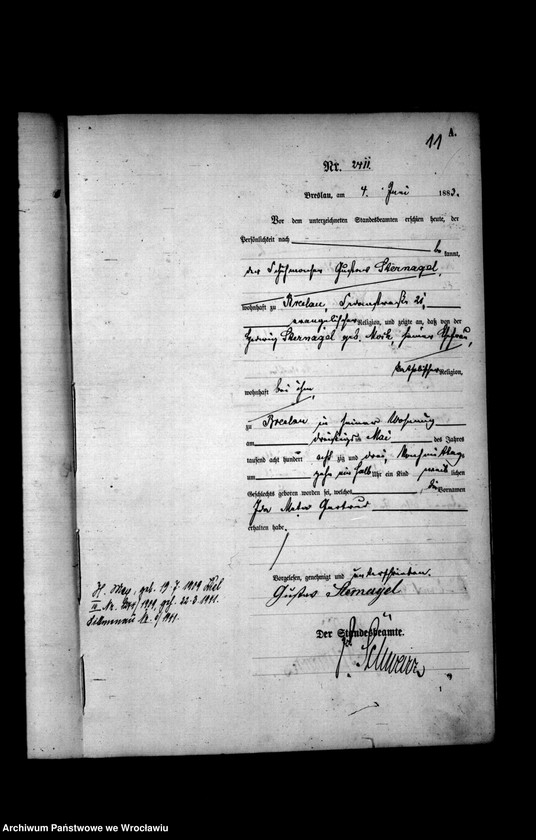 11 A.
Nr. 2411.
Breslau, am 4. Juni 1883.
Vor dem unterzeichneten Standesbeamten erschien heute, der
Persönlichkeit nach
kannt,
der Schuhmacher Gustav Sternagel,
wohnhaft zu Breslau
evangelischer Religion, und zeigte an, daß von der
Hedwig Sternagel geb. seiner Ehefrau,
katholischer Religion,
wohnhaft bei ihm,
zu Breslau in seiner Wohnung
am dreißigsten Mai des Jahres
tausend acht hundert acht zig und drei, Vormittags
um zehn ein halb Uhr ein Kind weib lichen
Geschlechts geboren worden sei, welches die Vornamen
Ida Gertrud
erhalten habe.
Vorgelesen, genehmigt und unterschrieben.
Gustav Sternagel
Der Standesbeamte.
1
Archiwum Państwowe we Wrocławiu